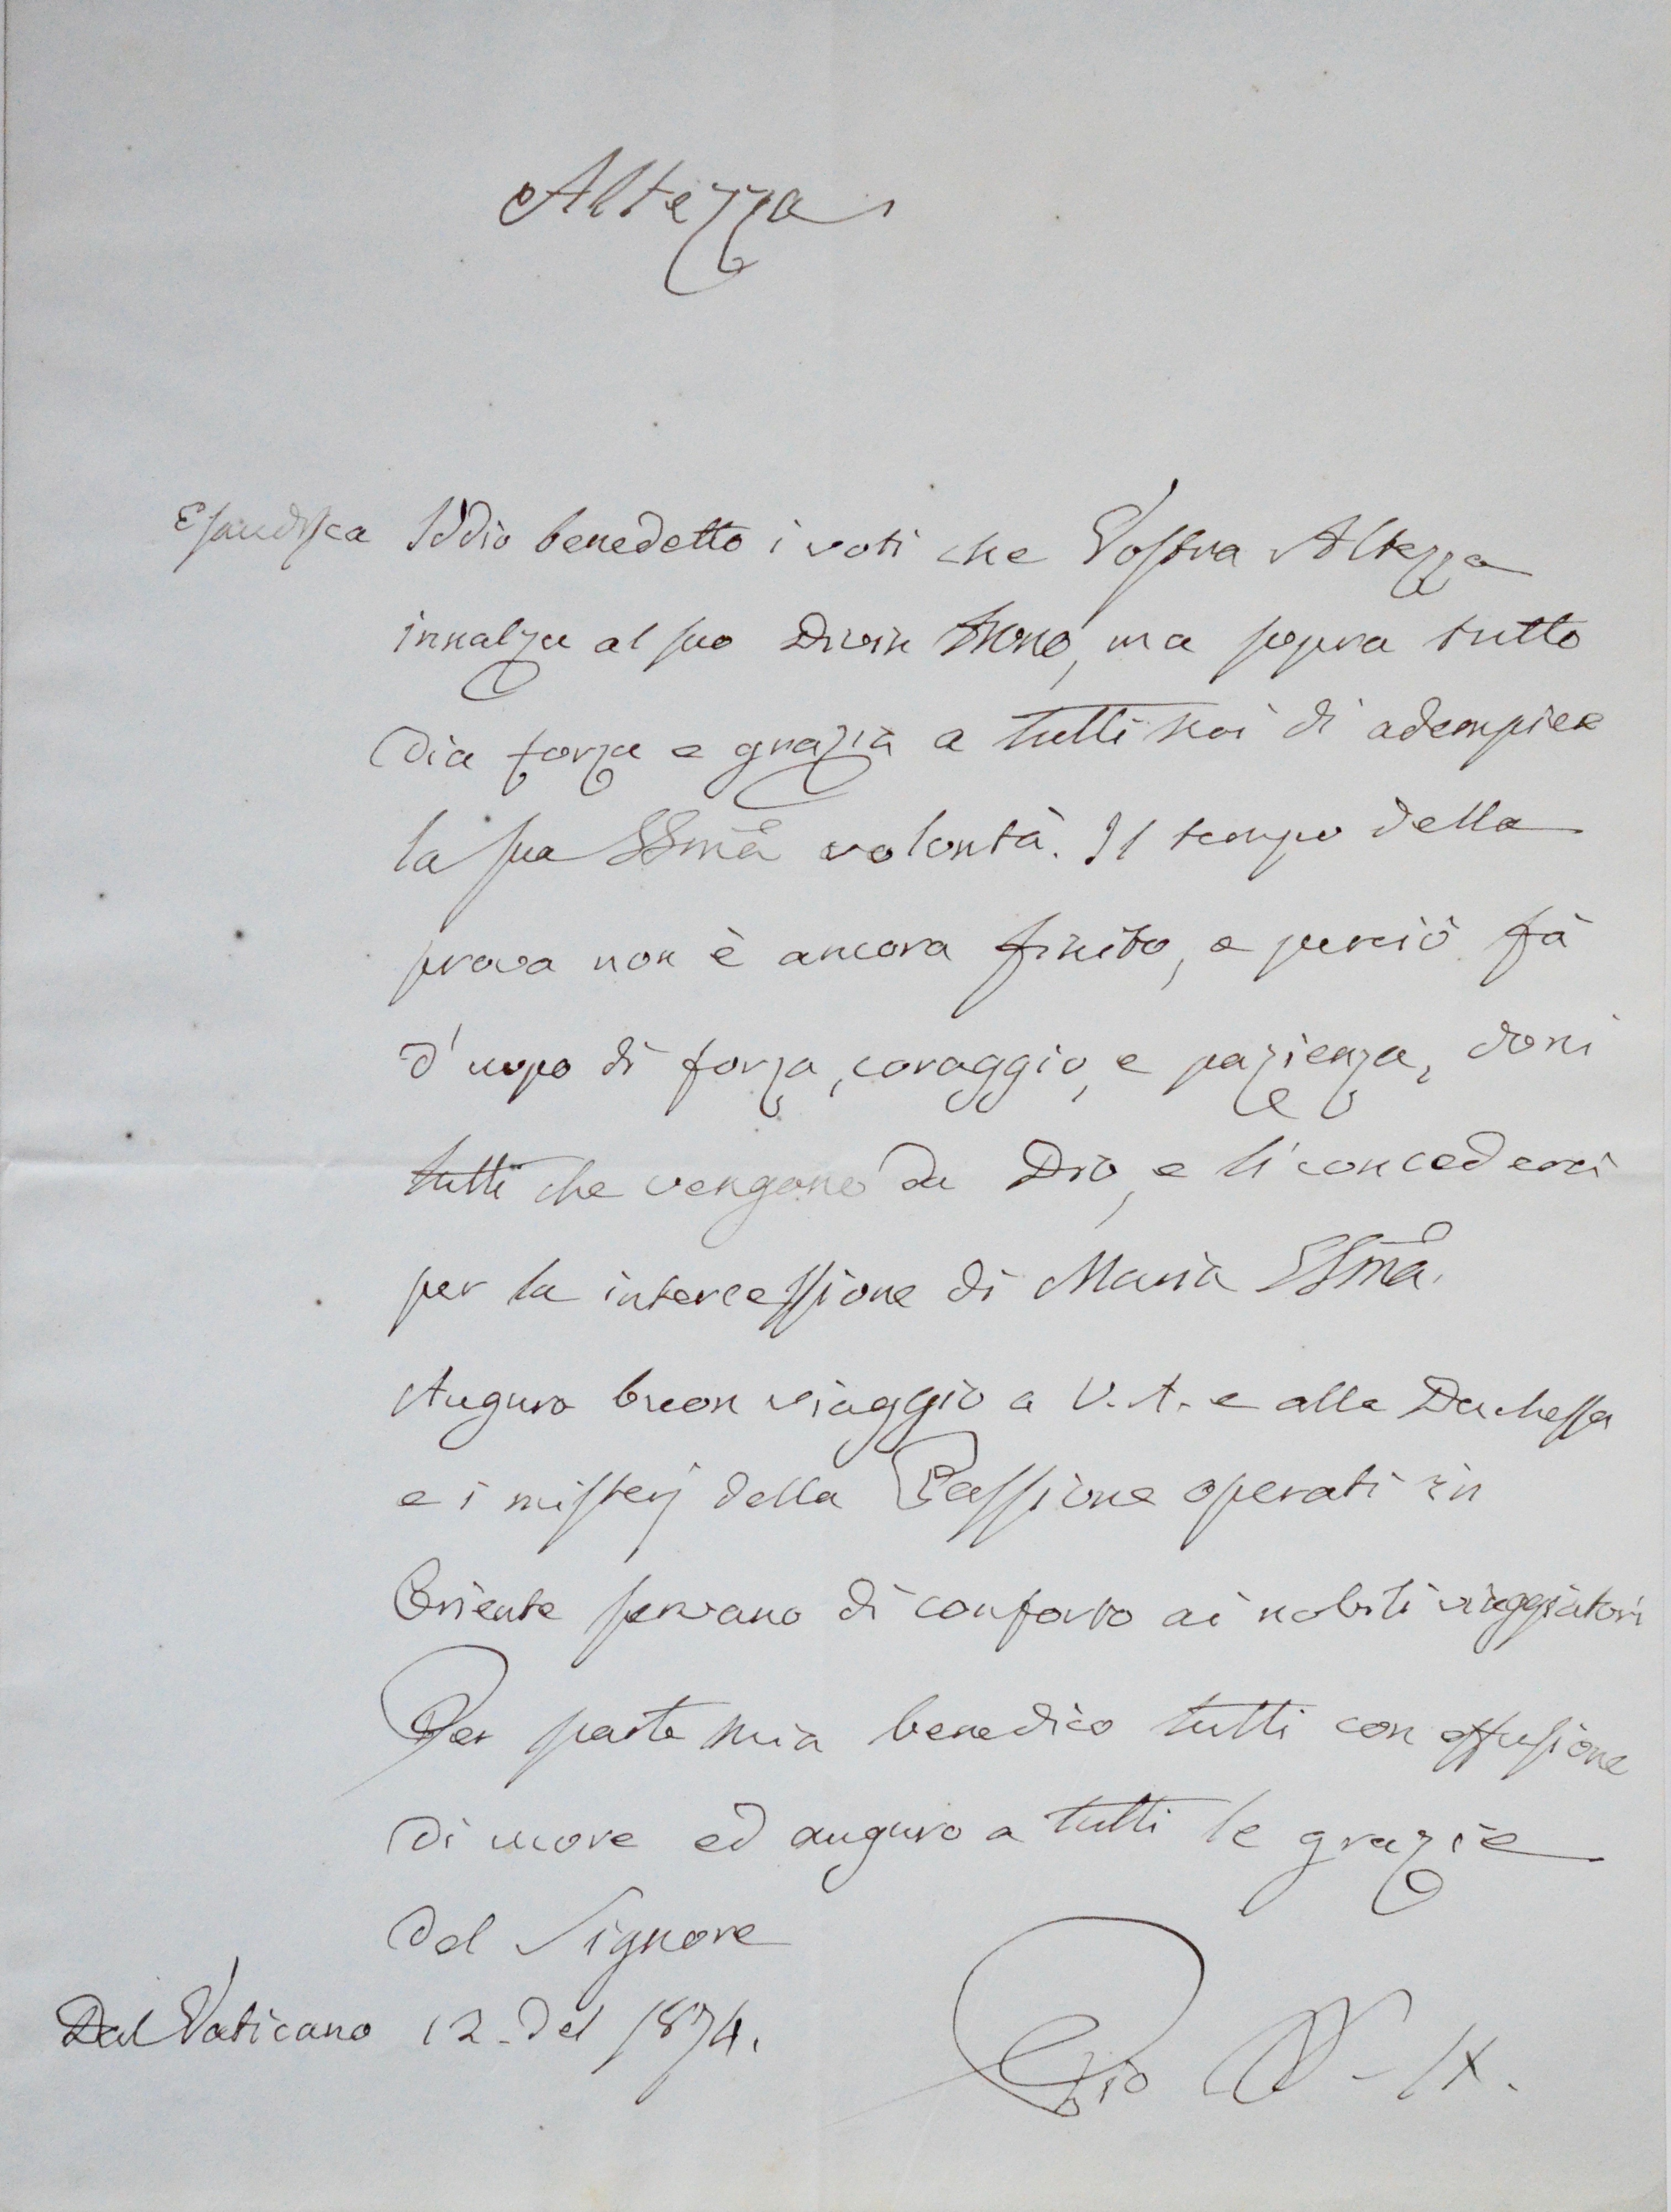 Altezza
Esaudisca Iddio benedetto i voti che Vostra Altezza
innalza al suo Divin trono, ma sopra tutto
dia forza e grazia a tutti noi di adempiere
la sua SSma volontà. Il tempo della
prova non è ancora finito, e perciò fà
d'uopo di forza, coraggio, e pazienza, doni
tutti che vengono da Dio, e li concederà
per la intercessione di Maria SSma.
Auguro buon viaggio a V. A. e alla Duchessa
e i misterj della Passione operati in
Oriente servano di conforto ai nobili viaggiatori
Per parte mia benedico tutti con effusione
di cuore ed auguro a tutti le grazie
del Signore
Dal Vaticano 12. del 1874.
Pio PP. IX.